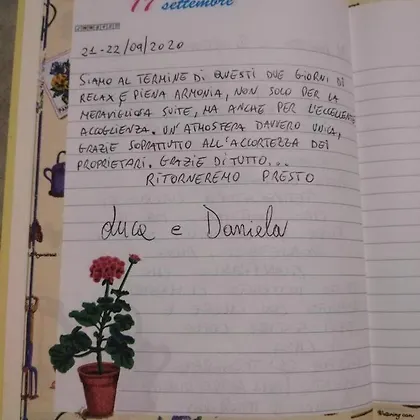 17 settembre
21-22/09/2020
SIAMO AL TERMINE DI QUESTI DUE GIORNI DI
RELAX E PIENA ARMONIA, NON SOLO PER LA
MERAVIGLIOSA SUITE, MA ANCHE PER L'ECCELLENTE
ACCOGLIENZA. UN'ATMOSFERA DAVVERO UNICA,
GRAZIE SOPRATUTTO ALL'ACCORTEZZA DEI
PROPRIETARI. GRAZIE DI TUTTO...
RITORNEREMO PRESTO
Luca e Daniela